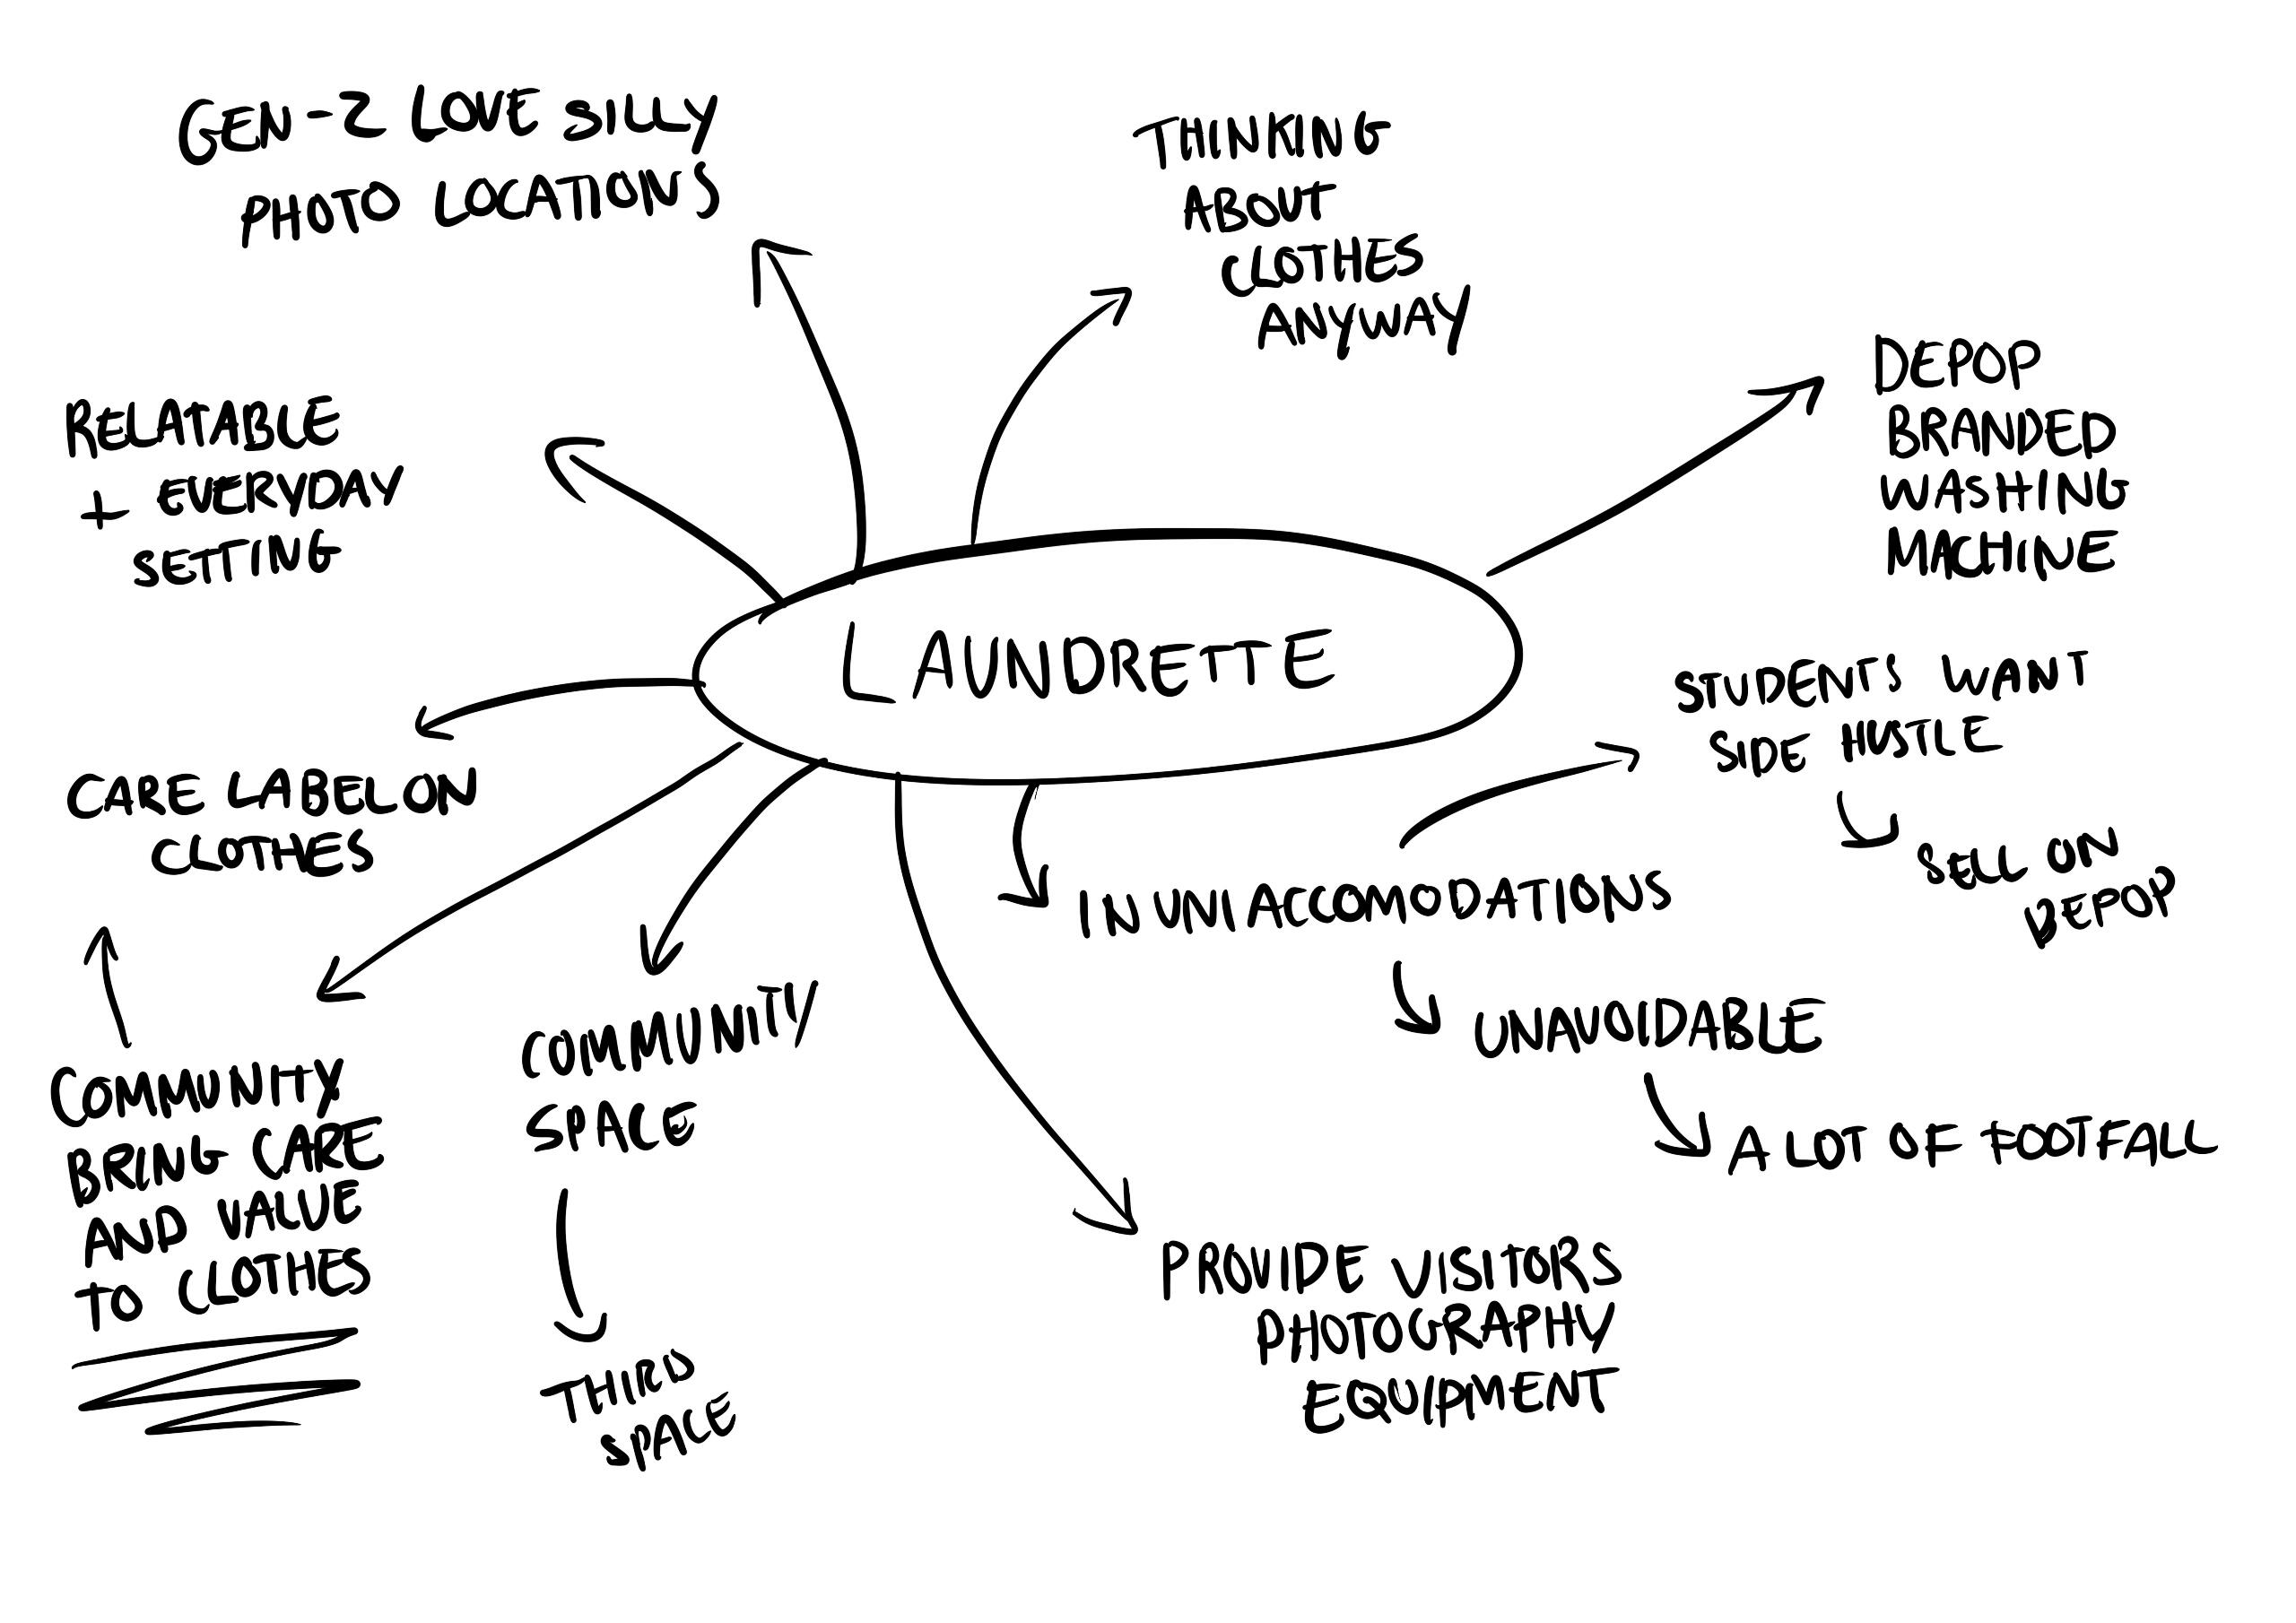 GEN-Z LOVE SILLY
PHOTO LOCATIONS
THINKING
ABOUT
CLOTHES
ANYWAY
DEPOP
BRANDED
WASHING
MACHINE
RELATABLE
+ EVERYDAY
SETTING
LAUNDRETTE
STUDENTS WANT
SIDE HUSTLE
SELL ON
DEPOP
CARE LABEL ON
CLOTHES
IN UNI ACCOMODATIONS
UNAVOIDABLE
A LOT OF FOOTFALL
COMMUNITY
BRING CARE
AND VALUE
TO CLOTHES
COMMUNITY
SPACE
THIRD
SPACE
PROVIDE VISITORS
PHOTOGRAPHY
EQUIPMENT